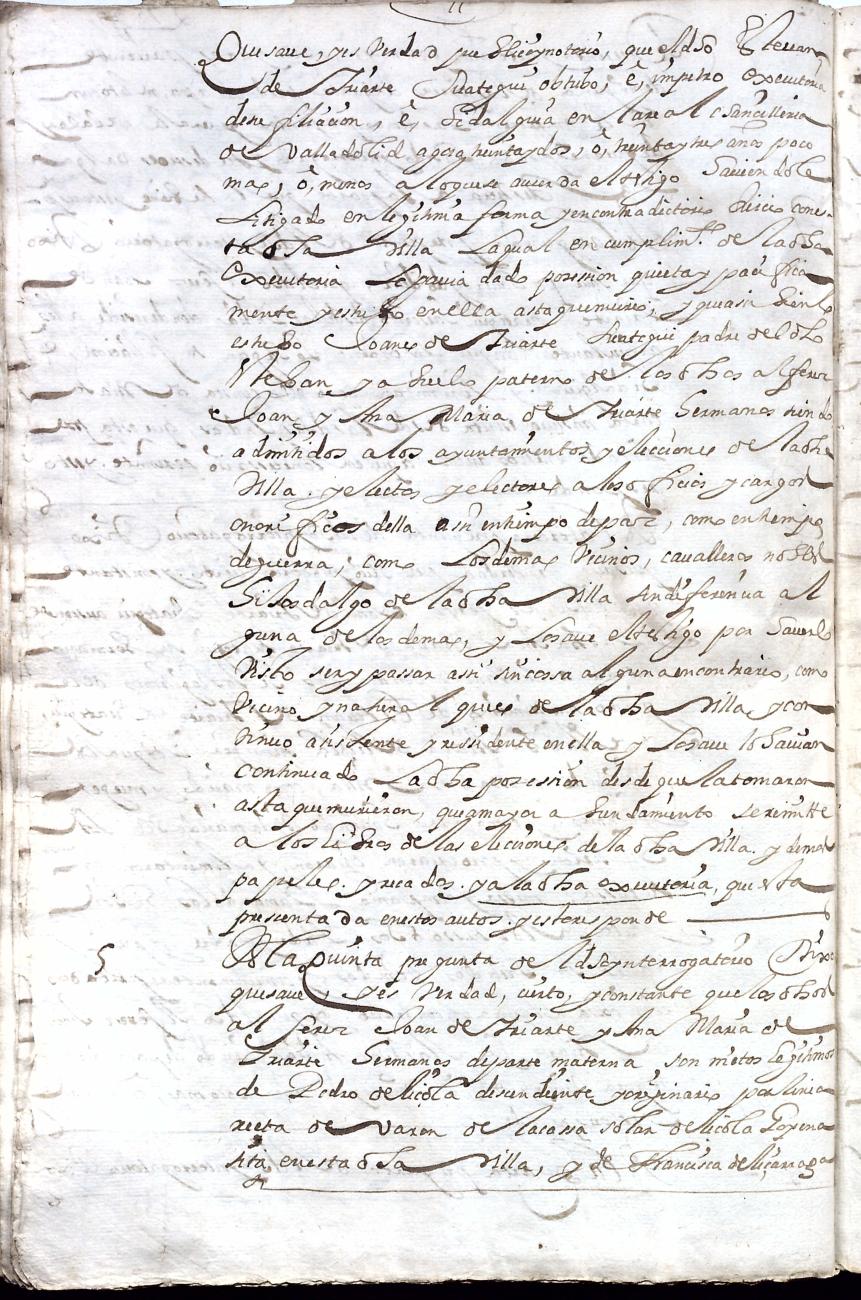 11
Que save, y es verdad pu.co y notorio, que el dho Estevan
de Yriarte obtubo, è, impetro executoria
de su filiacion, è, Hidalguia en la real chancilleria
de Valladolid agora treinta y dos, ò, treinta y tres años poco
mas, ò, menos a lo que se acuerda el testigo haviendole
Litigado en legitima forma y en contradictorio Juicio con es
ta dha Villa La qual en cumplim.to de la dha
executoria Le havia dado posession quieta y paçifica
mente y estubo en ella asta que murio, y que assi bien lo
estubo Joanes de Yriarte padre del dho
esteban y abuelo paterno de los dhos alferez
Joan y Ana Maria de Yriarte Hermanos siendo
admitidos a los ayuntamientos y elecciones de la dha
Villa. y electos y electores a los officios y cargos
onorificos della assi en tiempo de paz, como en tiempo
de guerra, como Los demas Vecinos, cavalleros nobles
Hijosdalgo de la dha Villa sin diferencia al
guna de los demas, y Lo save el testigo por haverlo
Visto ser y passar assi sin cossa alguna en contrario, como
Vecino y natural que es de la dha Villa y con
tinuo assistente y ressidente en ella y Lo save lo havian
continuado La dha posession desde que la tomaron
asta que murieron, que a mayor abundamiento se remitte
a los Libros de las elecciones de la dha Villa. y demas
papeles. y recados. y a la dha executoria, que esta
presentada en estos autos. y esto responde
5 A la quinta pregunta de el dho ynterrogatorio Dixo
que save, y es Verdad, cierto, y constante que los dhos
alferez Joan de Yriarte y Ana Maria de
Yriarte Hermanos de parte materna son nietos Legitimos
de Pedro de liçola descendiente y originario por linia
recta de varon de la cassa solar de liçola
sita en esta dha Villa, y de Francisca de liçarraga